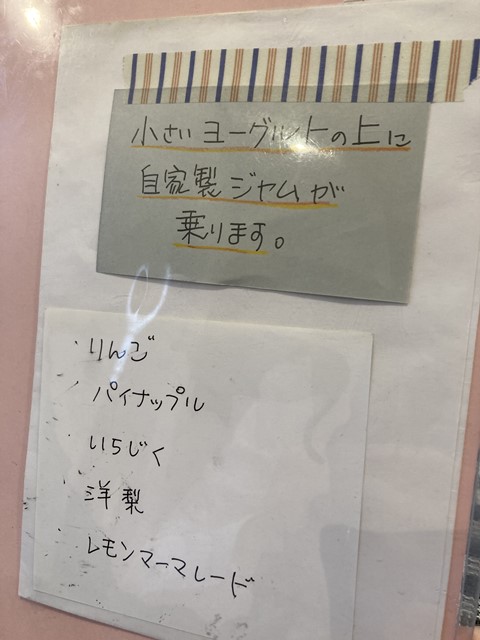 小さいヨーグルトの上に
自家製ジャムが
乗ります。
・りんご
・パイナップル
・いちじく
・洋梨
・レモンマーマレード